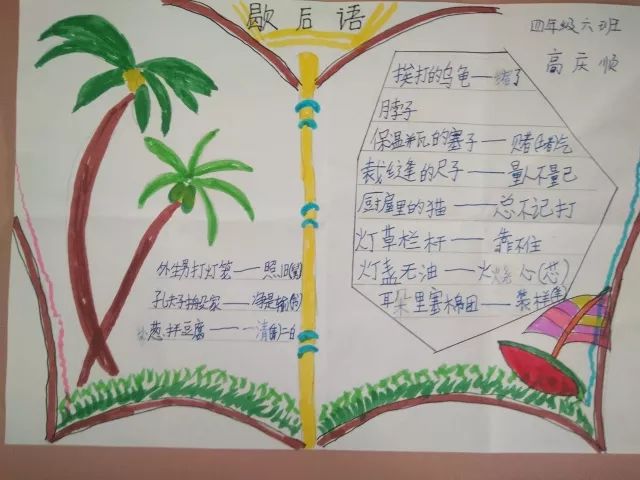 歇后语
四年级六班
高庆顺
外生男打灯笼——照旧(舅)
孔夫子搬家——净是输(书)
小葱拌豆腐——一清(青)二白
挨打的乌龟——缩了
月脖子
保温瓶的塞子——赌(堵)气
裁缝的尺子——量人不量己
厨屋里的猫——总不记打
灯草栏杆——靠不住
灯盏无油——火烧心(芯)
耳朵里塞棉田——装样